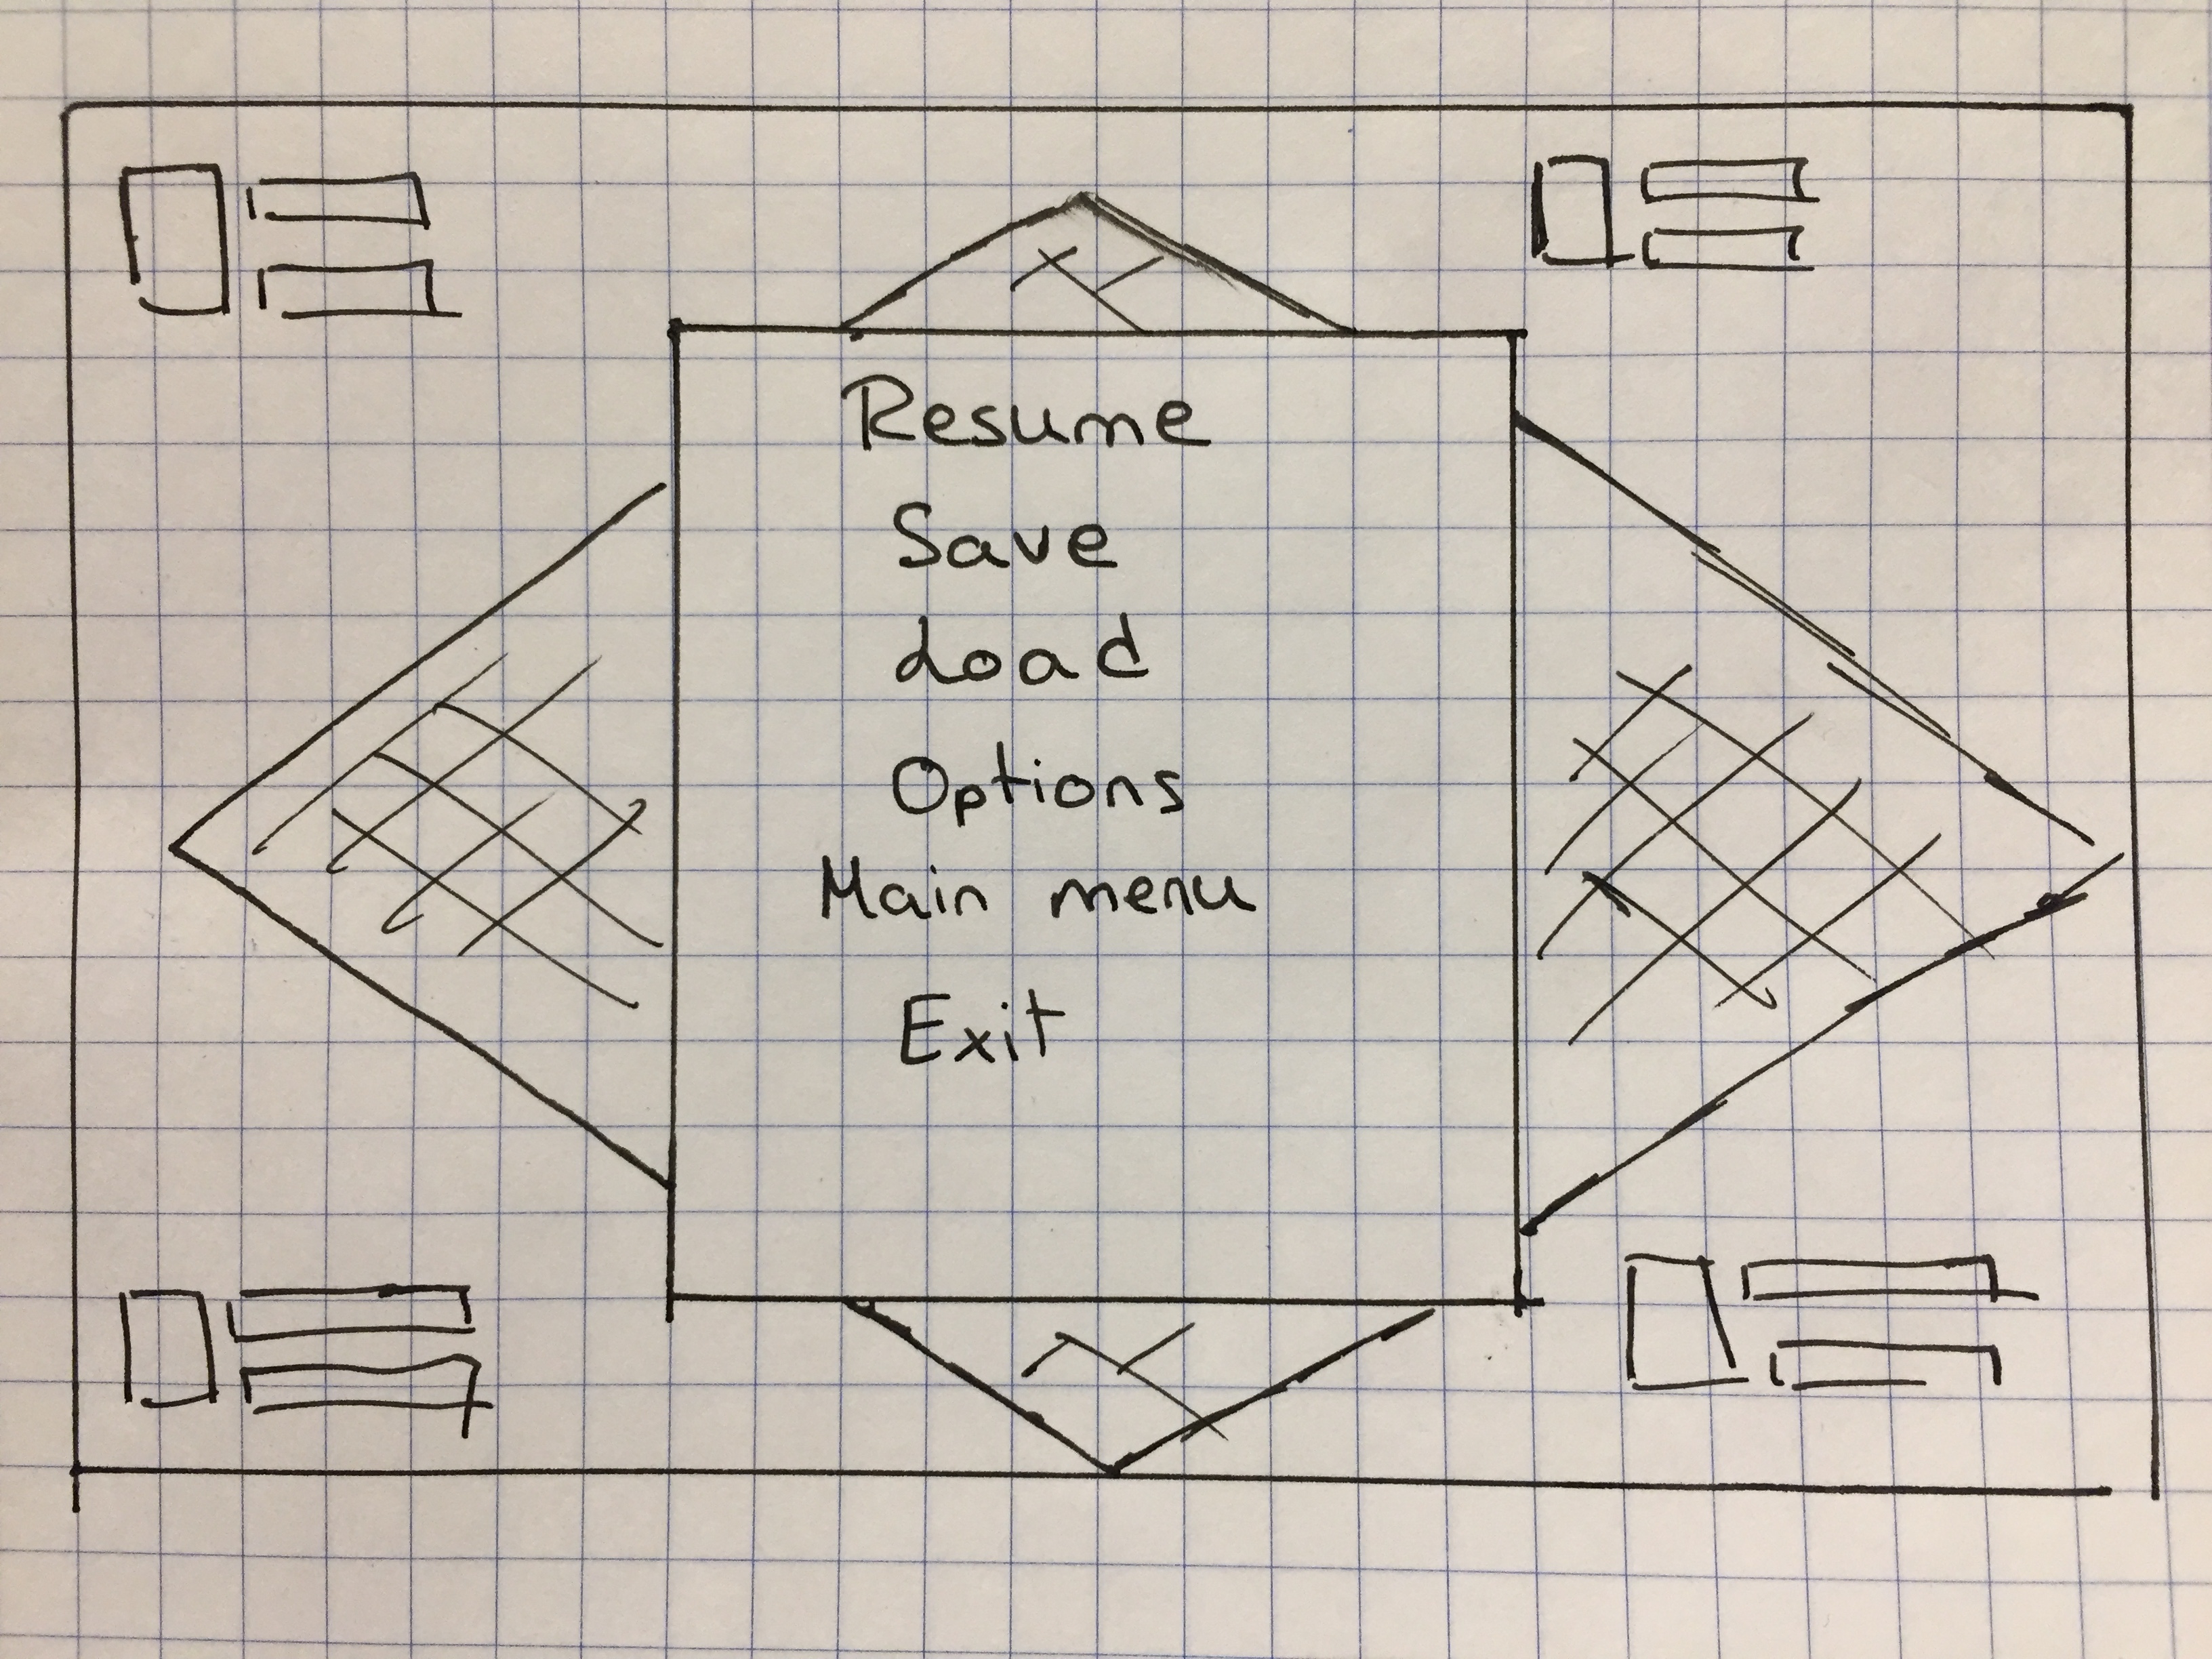 Resume
Save
Load
Options
Main menu
Exit